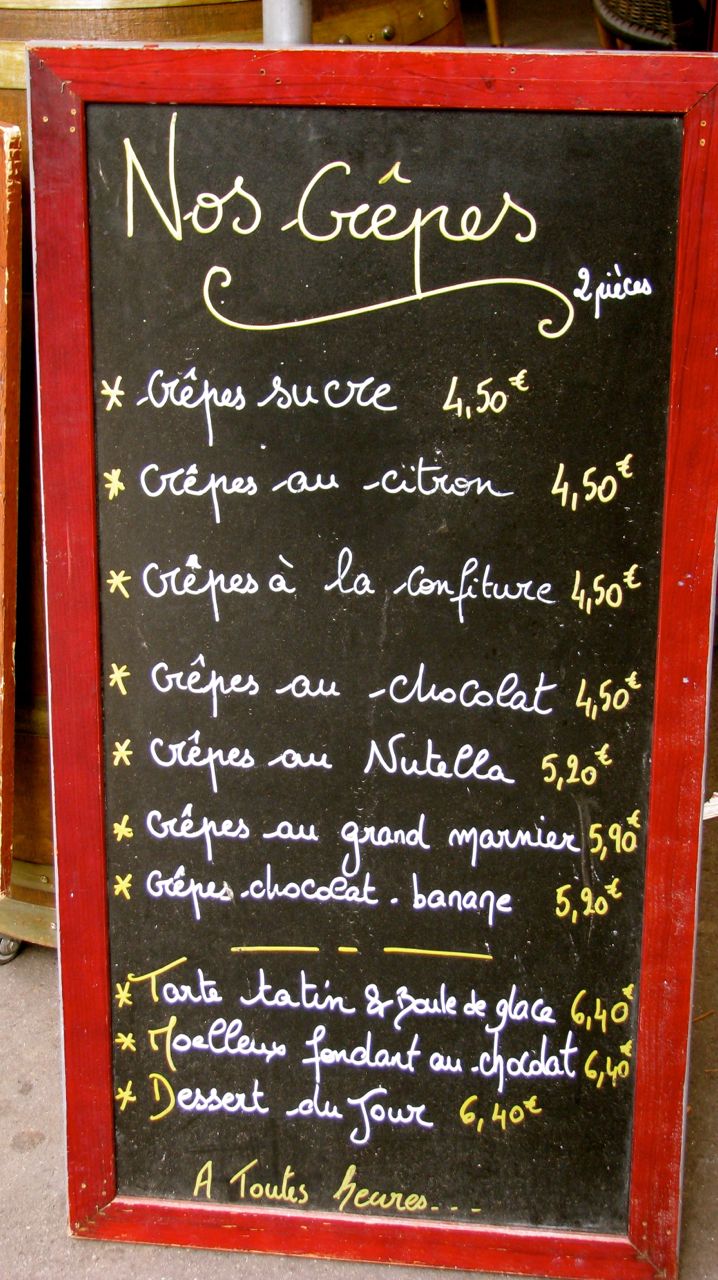 Nos Crêpes
2 pièces
* Crêpes sucre 4,50€
* Crêpes au citron 4,50€
* Crêpes à la confiture 4,50€
* Crêpes au chocolat 4,50€
* Crêpes au Nutella 5,20€
* Crêpes au grand marnier 5,90€
* Crêpes chocolat - banane 5,20€
* Tarte tatin & Boule de glace 6,40€
* Moelleux fondant au chocolat 6,40€
* Dessert du Jour 6,40€
A Toutes heures...